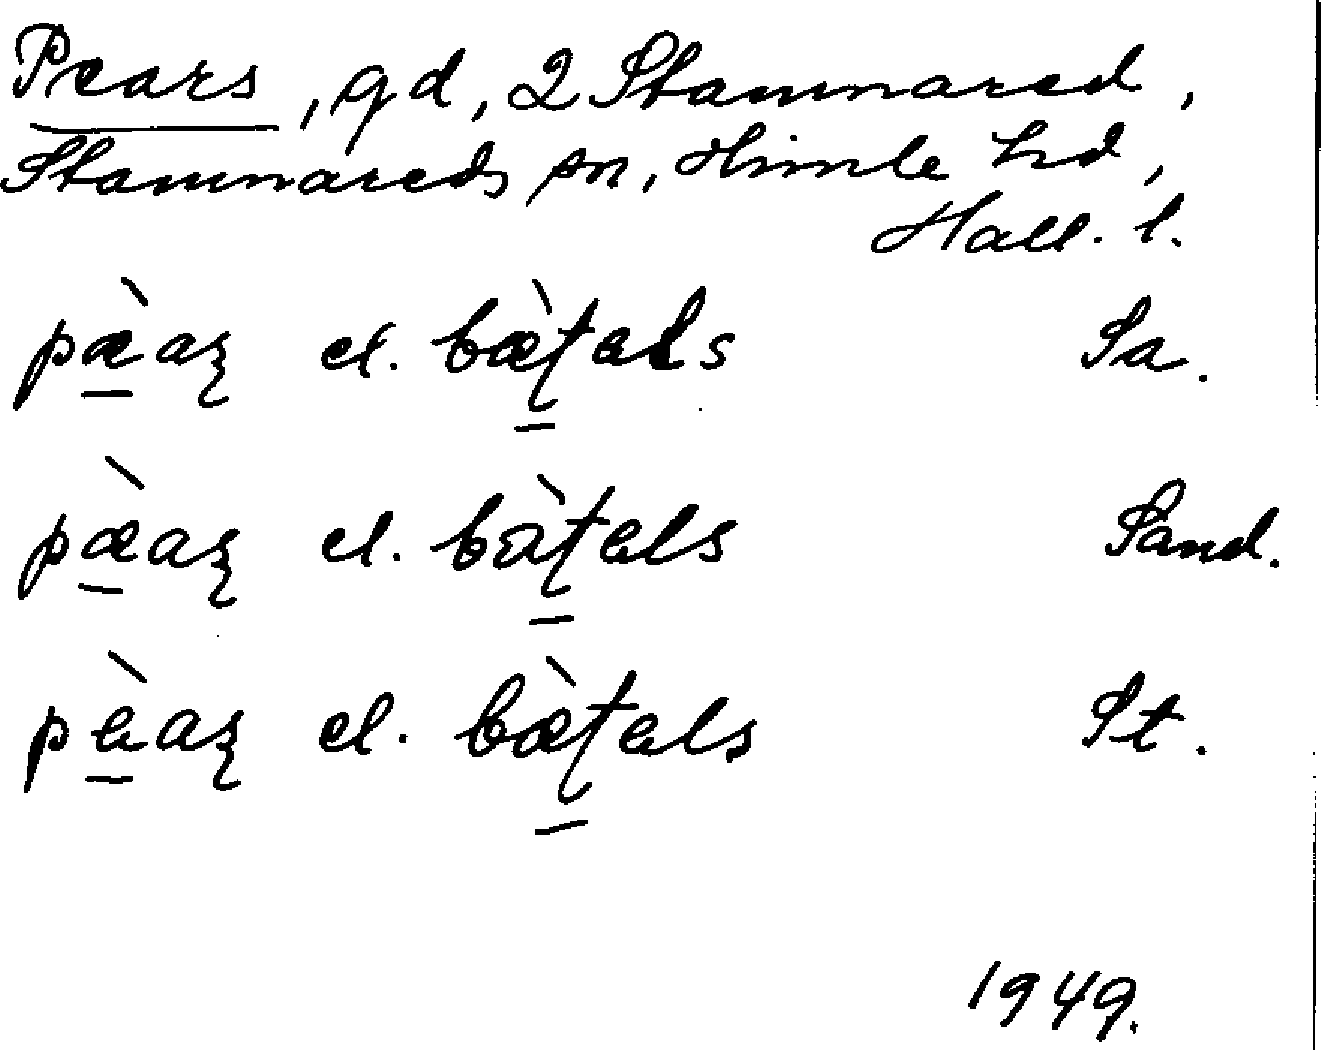 Pears, gd, 2 Stamnared,
Stamnareds sn, Himle hd,
Hall. l.
pæ̀aʂ el. bæ̀ʈals Sa.
pæ̀aʂ el. bàʈals Sand.
pàaʂ el. bæ̀ʈals St.
1949.